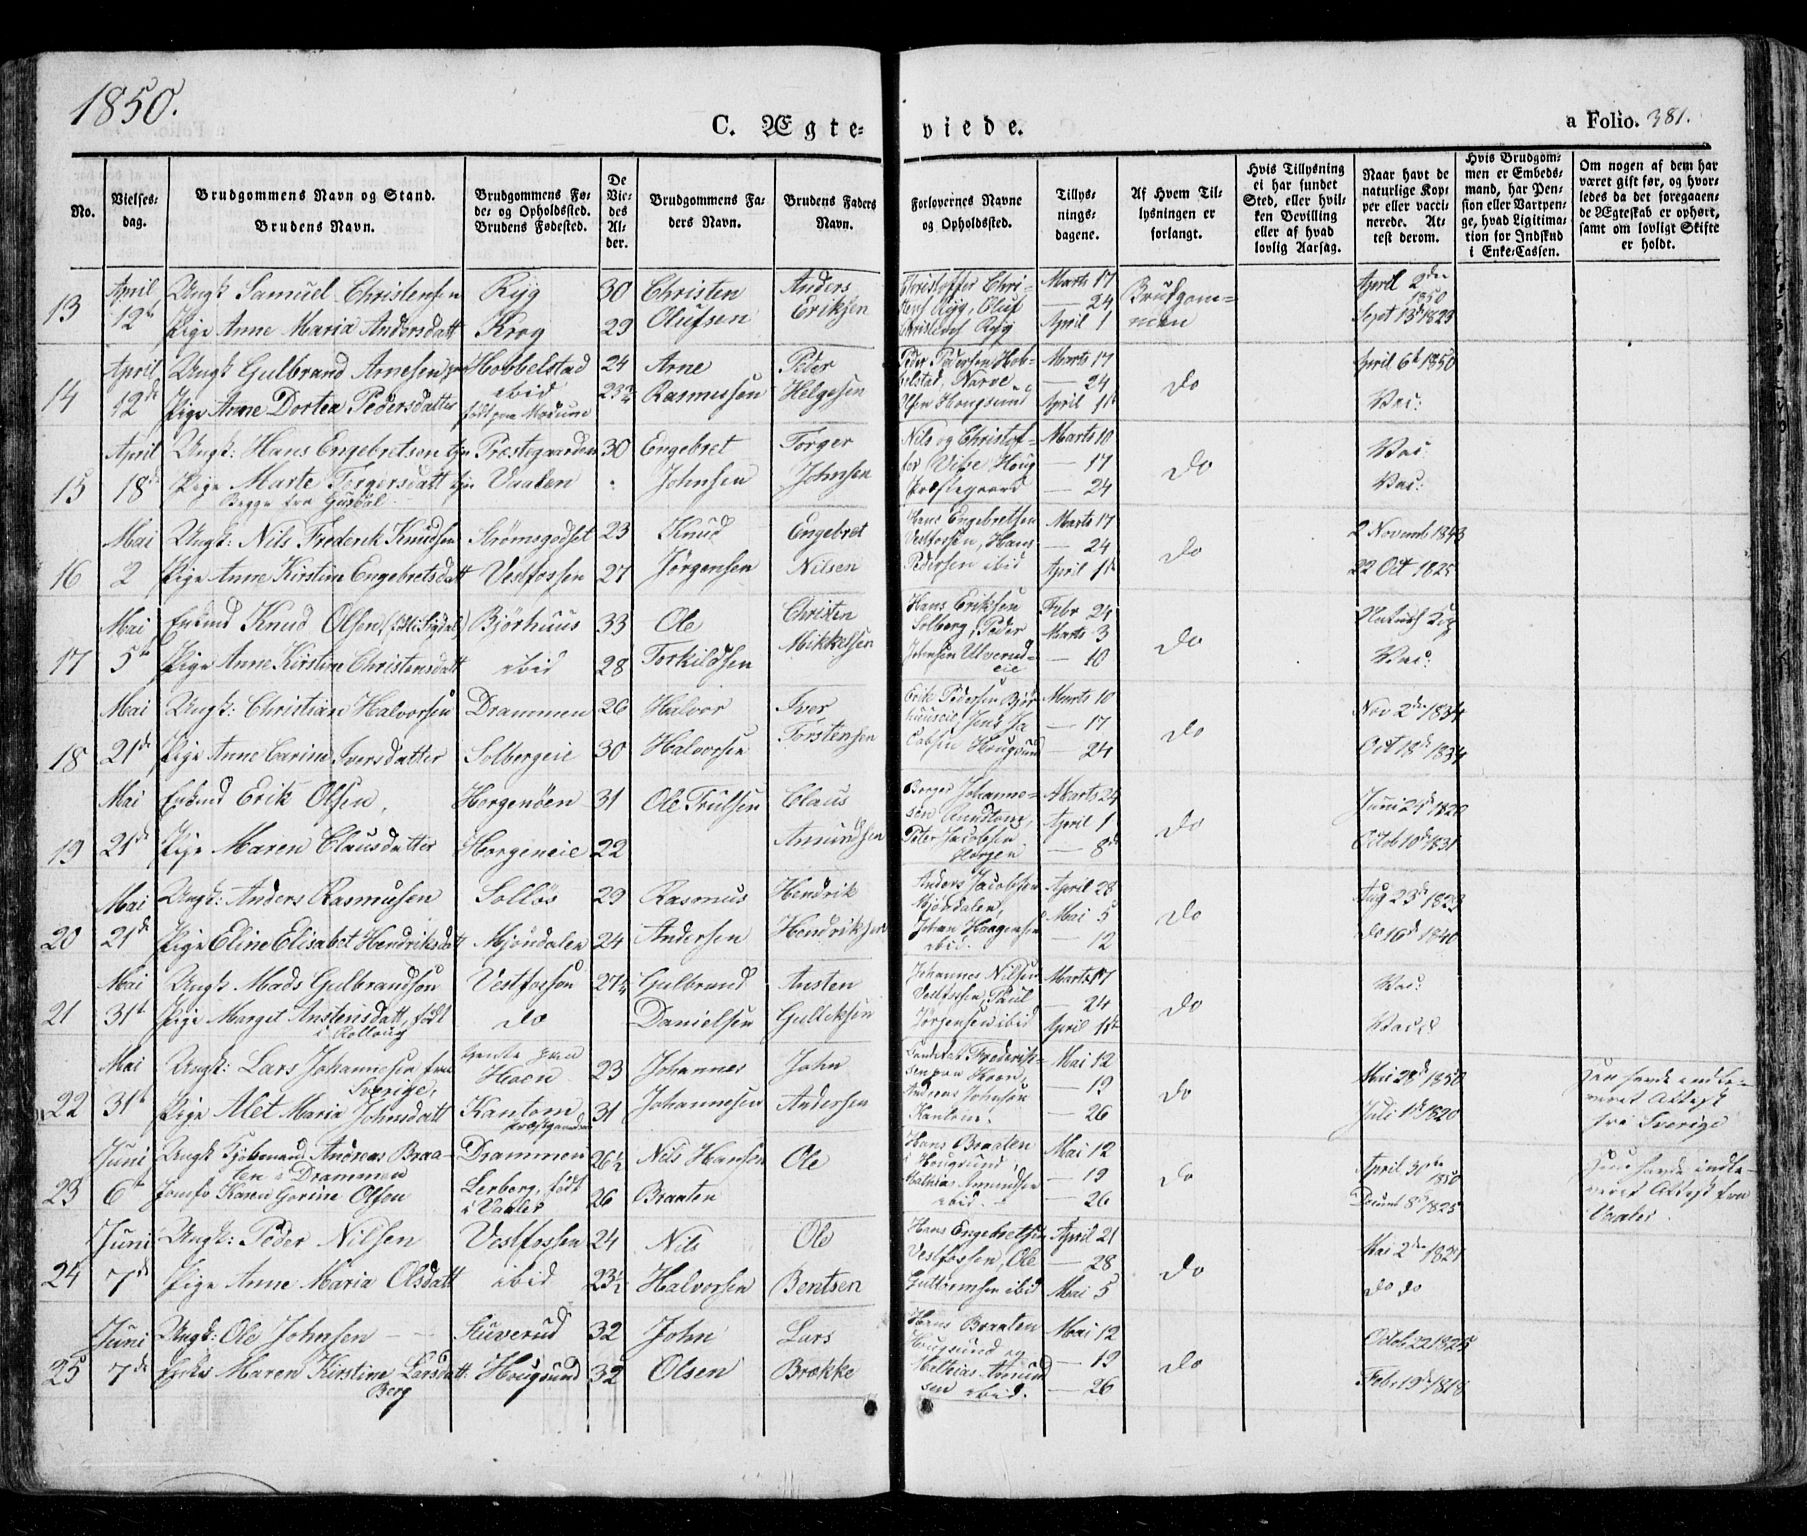 1850.
C. Ægte-
viede.
a Folio. 381.
No.
Vielses-
dag.
Brudgommens Navn og Stand.
Brudens Navn.
Brudgommens Fø-
de- og Opholdssted.
Brudens Fødested.
De
Vie-
des
Al-
der.
Brudgommens Fa-
ders Navn.
Brudens Faders
Navn.
Forlovernes Navne
og Opholdssted.
Tillys-
nings-
dagene.
Af Hvem Til-
lysningen er
forlangt.
Hvis Tillysning
ei har fundet
Sted, eller hvil-
ken Bevilling
eller af hvad
lovlig Aarsag.
Naar havt de
naturlige Kop-
per eller vacci-
nerede. At-
test derom.
Hvis Brudgom-
men er Embeds-
mand, har Pen-
sion eller Vartpen-
ge, hvad Ligitima-
tion for Indskud
i Enke-Cassen.
Om nogen af dem har
været gift før, og hvor-
ledes da det foregaaen-
de Ægteskab er ophørt,
samt om lovligt Skifte
er holdt.
April Ungk Samuel Christensen Ryg 30 Christen Anders Christoffer Chri- Marts 17 Brudgom- April 2den
1850
13 12te Pige Anne Maria Andersdatt Krog 29 Olufsen Eriksen stens Ryg, Oluf — 24 men Sept 13d 1823
Christens Ryg April 1
April Ungk Gulbrand Arnesen Hobbelstad 24 Arne Peder Peder Pedersen Hob- Marts 17 April 6t 1850
14 12te Pige Anne Dortea Pedersdatter ibid 23½ Rasmussen Helgesen belstad, Narve — 24 do Vac:
født paa Modum Olsen Hougsund April 1t
April Ungk: Hans Engebretsen Præstegaarden 30 Engebret Torger Nils og Christof- Marts 10 Vac
15 18de Pige Marte Torgersdatt Vaalen Johnsen Johnsen fer Vise Houg — 17 do Vac:
Begge fra Præstegaard — 24
Mai Ungk: Nils Frederik Knudsen Strømsgodset 23 Knud Engebret Hans Engebretsen Marts 17 2 Novemb 1843
16 2 Pige Anne Kirstine Engebretsdatt Vestfossen 27 Jørgensen Nilsen Vestfossen, Hans — 24 do 22 Oct 1825
Pedersen ibid April 1t
Mai Enkmd Knud Olsen Bjørhuus 33 Ole Christen Hans Eriksen Febr 24 Naturl Kop
17 5te Pige Anne Kirstine Christensdatt ibid 28 Torkildsen Mikkelsen Solberg, Peder Marts 3 do Vac:
Johnsen Ulverud- — 10
eie
Mai Ungk: Christian Halvorsen Drammen 26 Halvor Iver Erik Pedersen Bjør- Marts 10 Nov 2den 1834
18 21de Pige Anne Carine Iversdatter Solbergeie 30 Halvorsen Torstensen huuseie, Jens Ja- — 17 do Oct 18de 1834
cobsen Hougsund — 24
Mai Enkmd Erik Olsen, Horgenøen 31 Ole Trulsen Claus Borger Johanne- Marts 24 Juni 24de 1820
19 21de Pige Maren Clausdatter Horgeneie 22 Amundsen sen April 1 do Octob 10de 1831
Peter Jacobsen — 8de
Horgen
Mai Ungk: Anders Rasmusen Solløs 29 Rasmus Hendrik Anders Jacobsen April 28 Aug 23de 1823
20 21de Pige Eline Elisabet Hendriksdatt Mjøndalen 24 Andersen Hendriksen Mjøndalen, Mai 5 do do 16de 1840
Johan Haagensen — 12
ibid.
Mai Ungk Mads Gulbrandsen Vestfossen 27¼ Gulbrand Austen Johannes Nilsen Marts 17 Vac:
21 31te Pige Marget Austensdatt, født do Danielsen Gulliksen Vestfossen, Paul — 24 do Vac:
i Rollaug Jørgensen ibid April 1ste
Mai Ungk: Lars Johannesen fra Hoen 23 Johannes John Frederik- Mai 12 Mai 28de 1850
Sverige, sen paa Hoen
22 31te Pige Alet Maria Johnsdatt Kantom 31 Johannesen Andersen Andreas Johnsen — 19 do Juli 1ste 1820
Kantom. — 26
fra Sverige
Juni Ungk Kjøbmand Andreas Braa- Drammen 26½ Nils Hansen Ole Hans Braaten Mai 12 April 30te
ten i Drammen i Hougsund, 1850
23 6te Jomfr Karen Gorine Olsen Lerberg, født 26 Braaten Mathias Amundsen — 19 do Decemb 8de 1825
i Vaaler ibid. — 26 Vaaler.
Juni Ungk: Peder Nilsen Vestfossen 24 Nils Ole Hans Engebretsen April 21 Mai 2den 1821
24 7de Pige Anne Maria Olsdatt ibid 23½ Halvorsen Bentsen Vestfossen, Ole — 28 do do do
Guttormsen ibid Mai 5
Juni Ungk: Ole Johnsen — Stuverud 32 John Lars Hans Braaten Mai 12 Octob 22 1825
25 7de Maren Kirstine Larsdatt: Hougsund 32 Olsen Brække Hougsund og — 19 do Febr 19de 1818
Berg Mathias Amund- — 26
sen ibid.